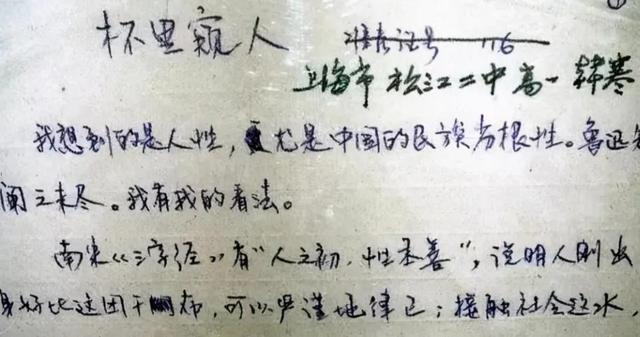 杯里窥人
准考证号 116
上海市松江二中高一 韩寒
我想到的是人性，尤是中国的民族劣根性。鲁迅先
阐之未尽。我有我的看法。
南宋《三字经》有“人之初，性本善”，说明人刚出
身好比这团干布，可以严谨地律己；接触社会这水，